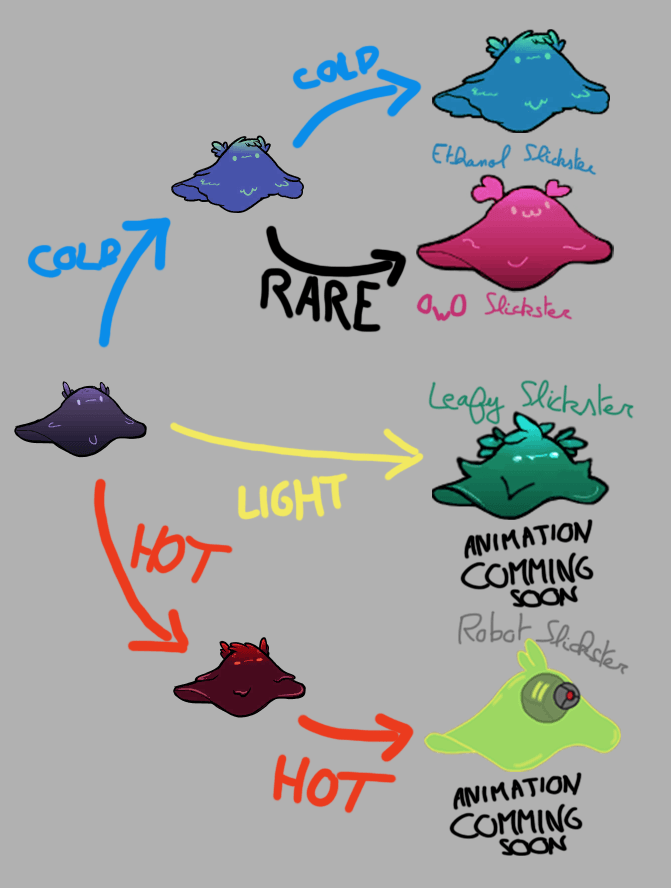 COLD
Ethanol Slickster
COLD
RARE
OwO Slickster
Leafy Slickster
LIGHT
ANIMATION
COMMING
SOON
HOT
Robot Slickster
HOT
ANIMATION
COMMING
SOON